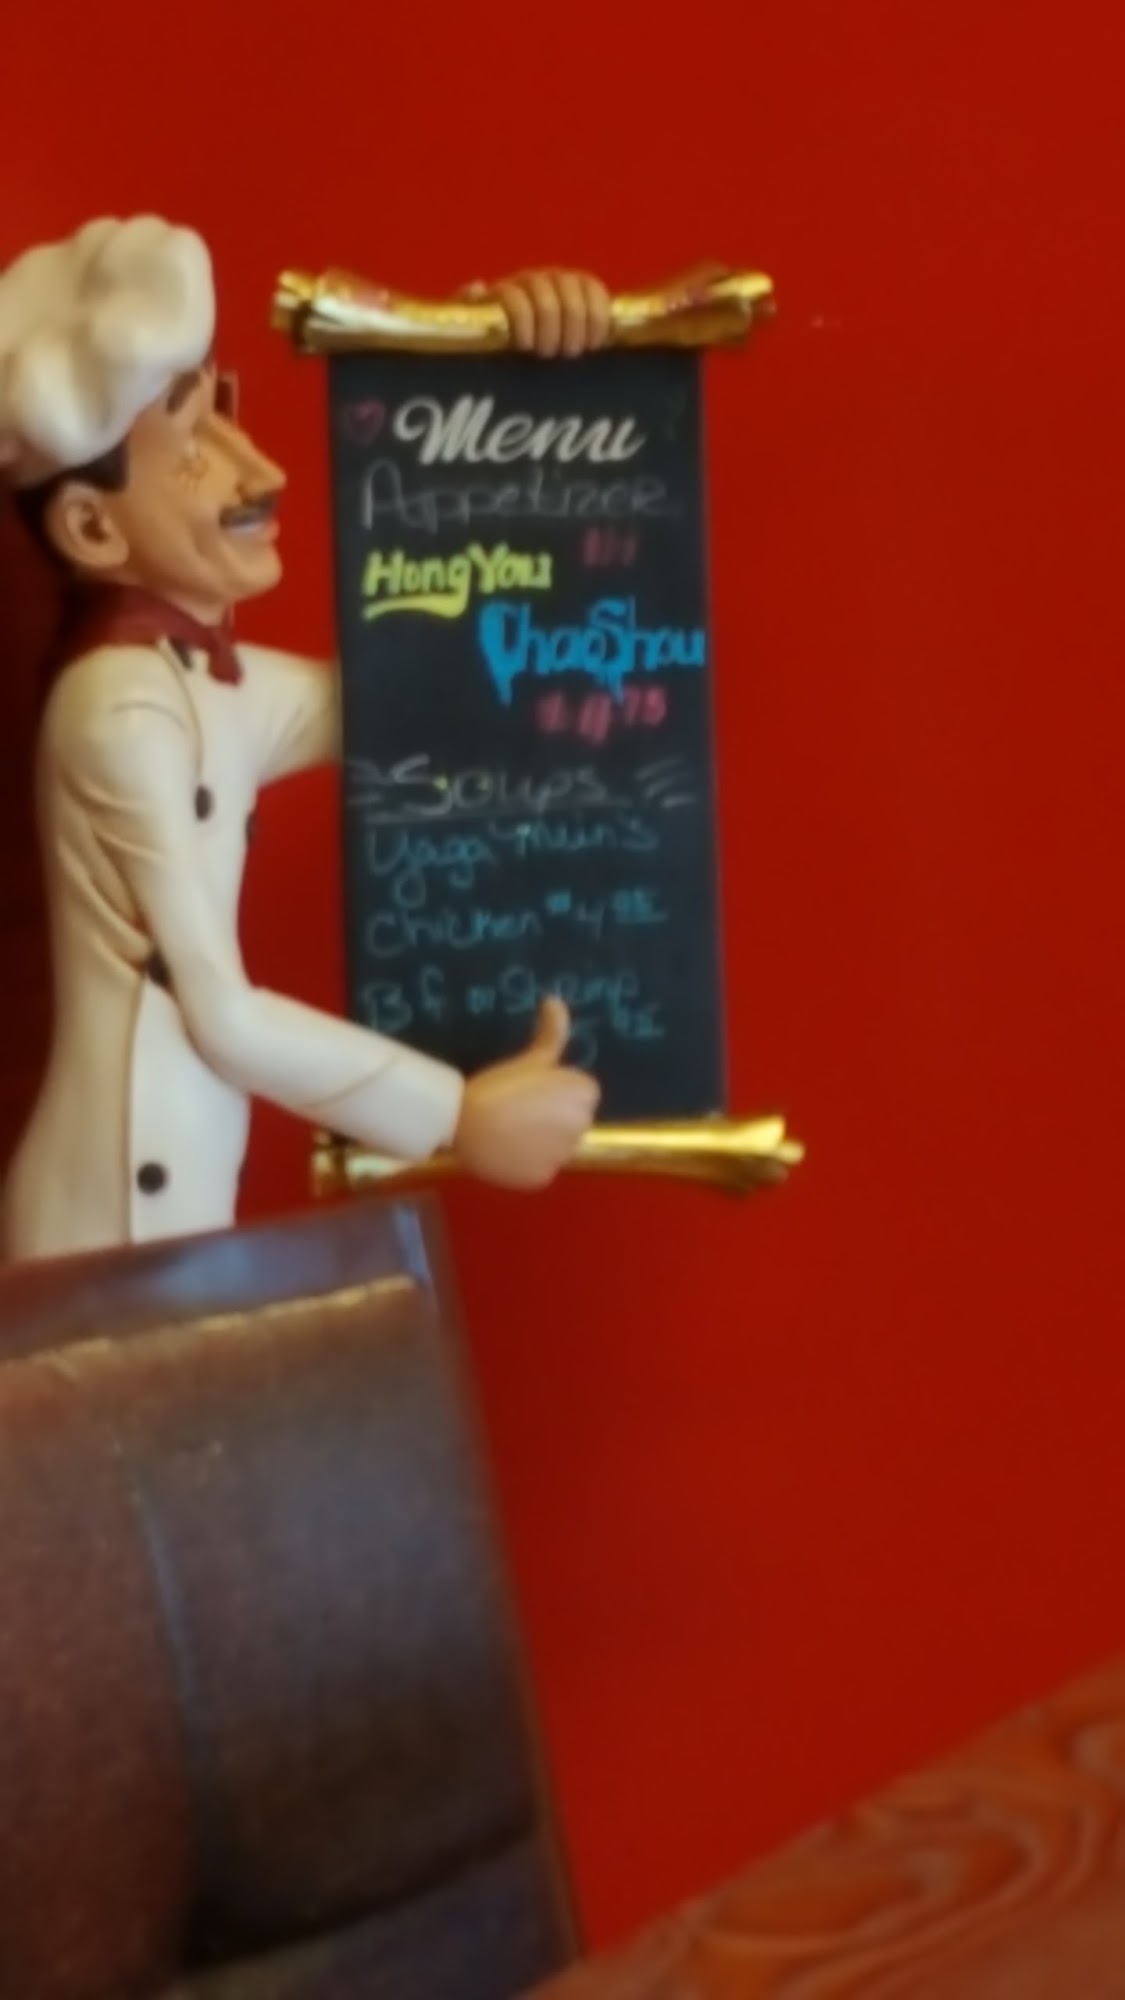 Menu
Appetizer
Hong You
Chao Shou
75
Soups
Yaga Mein's
Chicken $4 95
B f or Shrimp
5 95